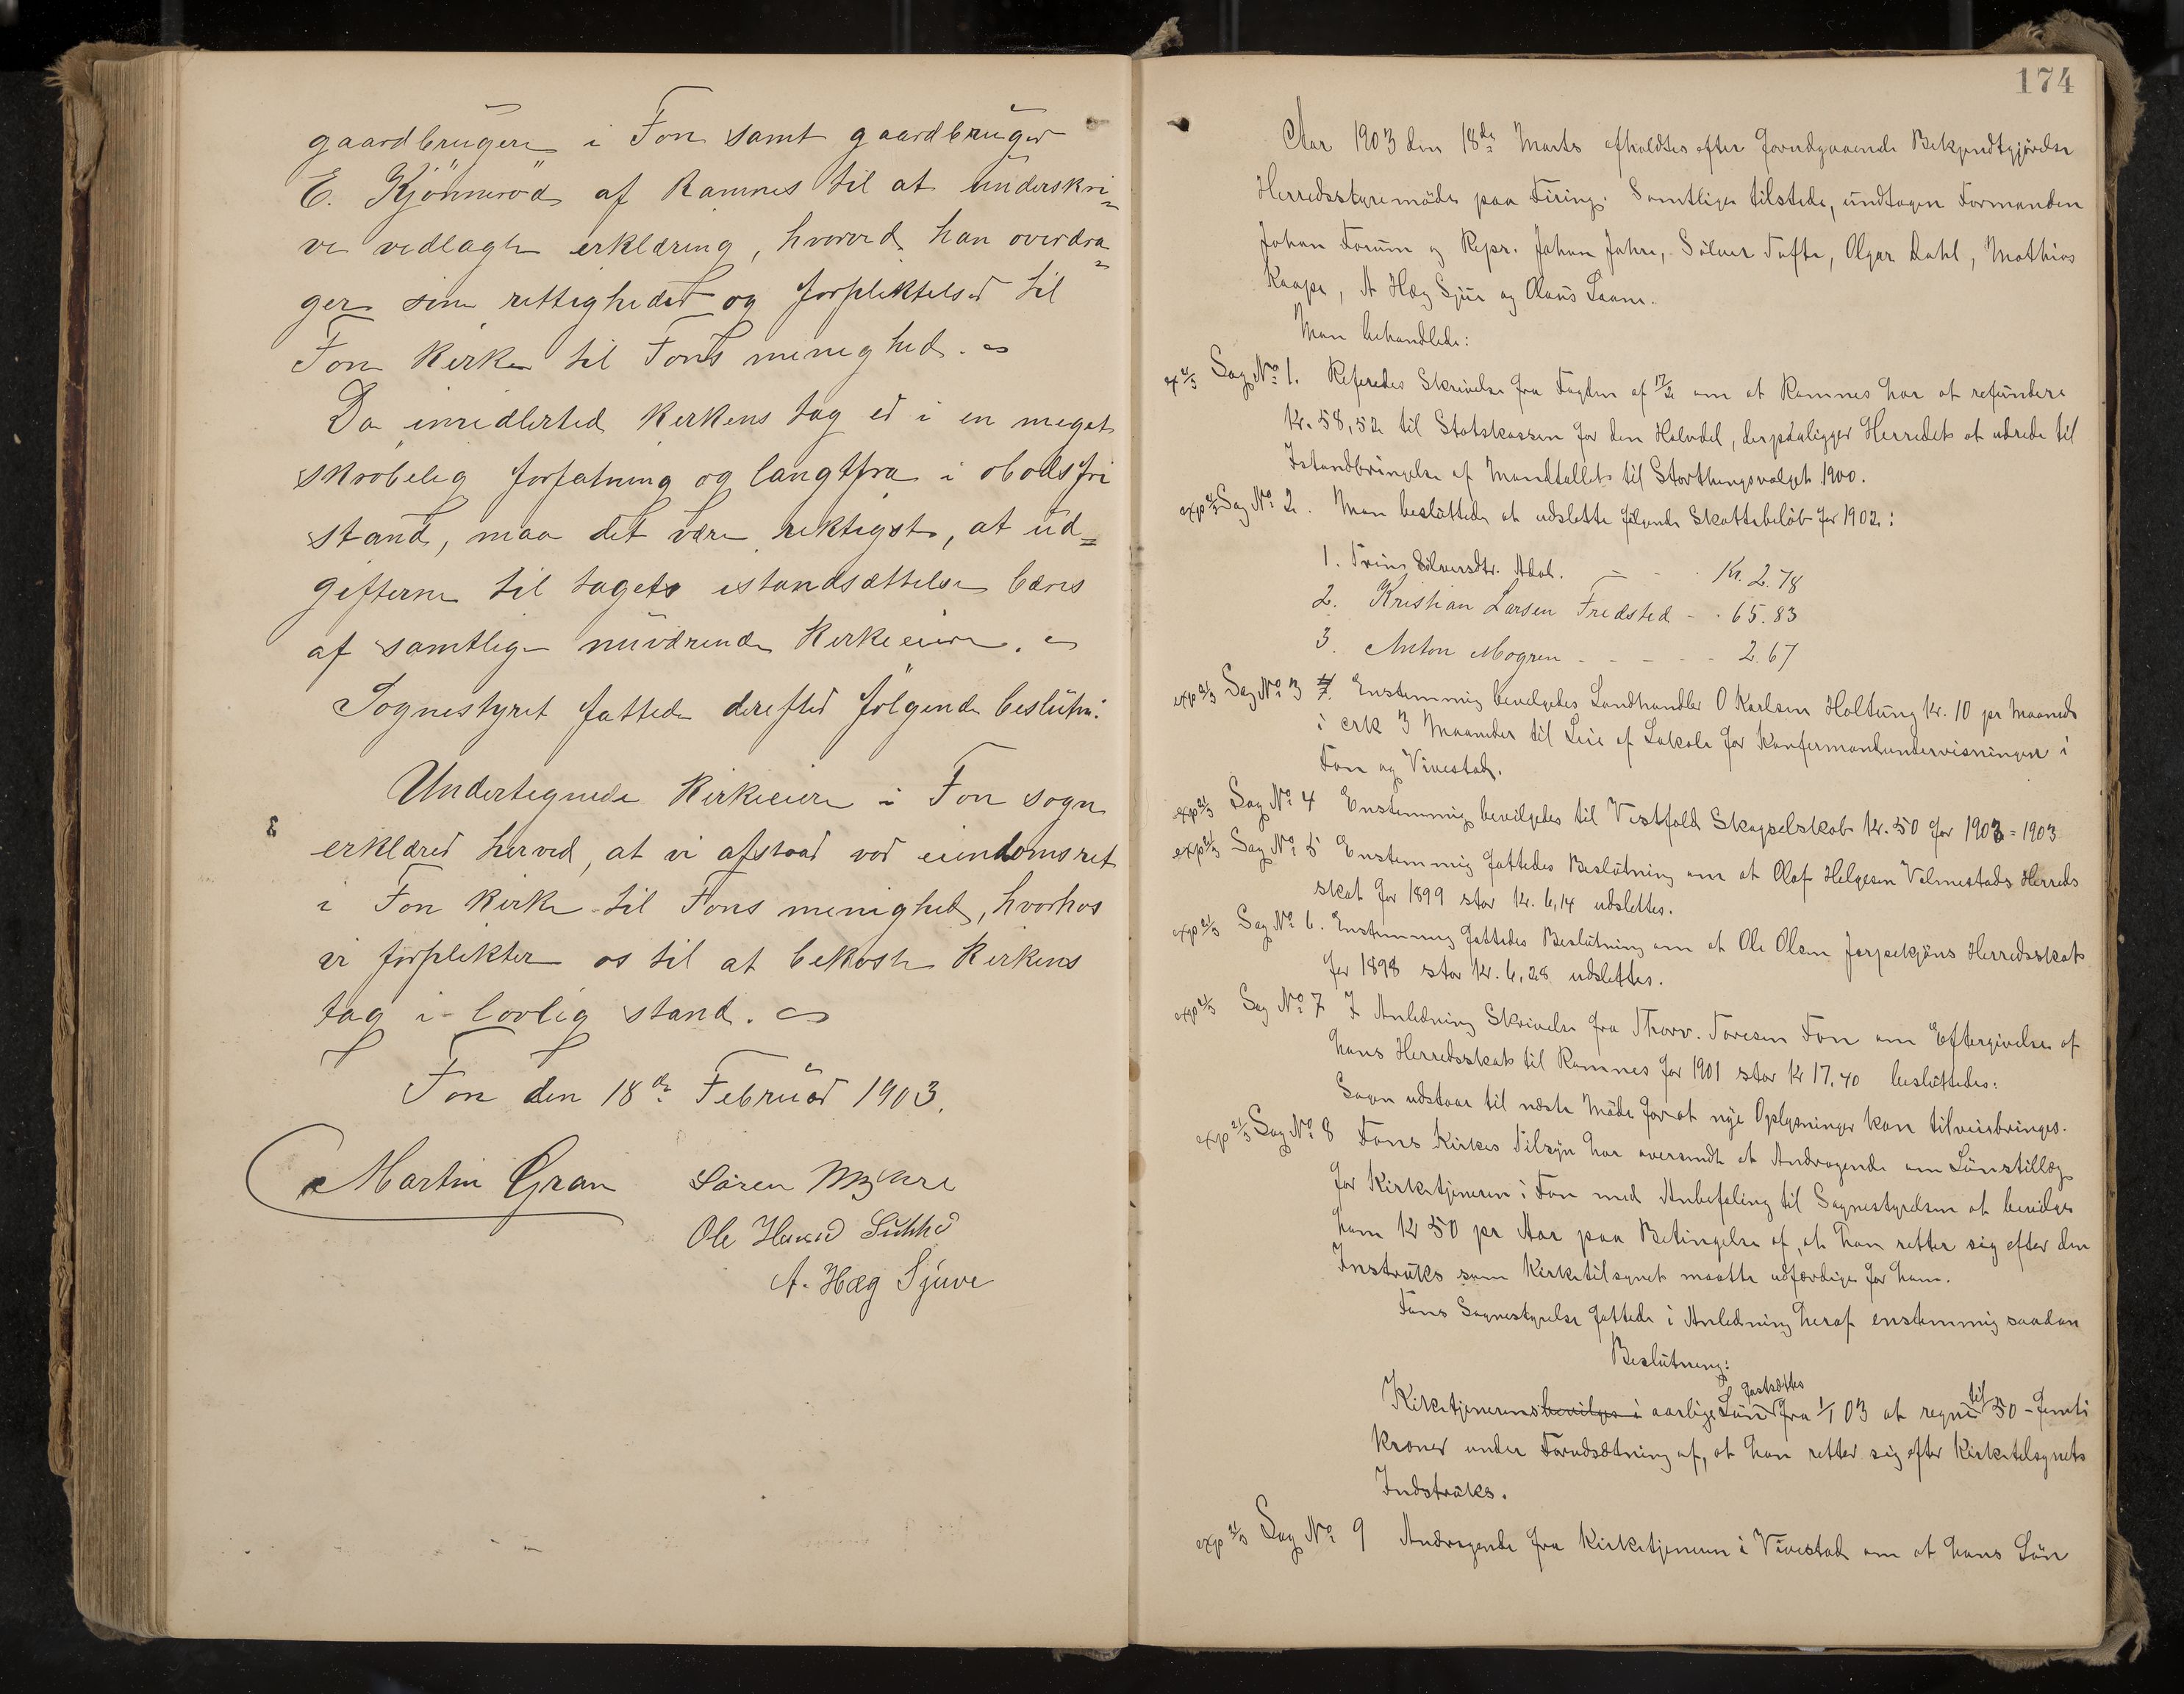 gaardbrugere i Fon samt gaardbruger
E. Kjönneröd af Ramnes til at underskri=
ve vedlagte erklæring, hvorved han overdra=
ger sine rettigheder og forpliktelser til
Fon Kirke til Fons menighed.
Da imidlertid Kirkens tag er i en meget
skröbelig forfatning og langtfra i obodsfri
stand, maa det være riktigst, at ud=
gifterne til tagets istandsættelse bæres
af samtlige nuværende Kirkeeiere.
Sognestyret fattede derefter følgende beslutn:
Undertegnede Kirkeeiere i Fon sogn
erklærer herved, at vi afstaar vor eiendomsret
i Fon Kirke til Fons menighed, hvorhos
vi forplikter os til at bekoste Kirkens
tag i lovlig stand.
Fon den 18de Februar 1903.
Martin Gran Sören Myhre
Ole
A. Hæg Sjuve
174
Aar 1903 den 18de Marts afholdtes efter forudgaaende Bekjendtgjörelse
Herredsstyremöde paa Firing. Samtlige tilstede, undtagen Formanden
Johan Forum og Repr. Johan Jahre, Sölver Tufte, Olgar Dahl, Mathias
Kaape, A Hæg Sjue og Olaus Laane.
Man behandlede:
Sag No 1. Referedes Skrivelse fra Fogden af 17/2 om at Ramnes har at refundere
Kr. 58,52 til Statskassen for den Halvdel, der paaligger Herredet at udrede til
Istandbringelse af Mandtallet til Storthingsvalget 1900.
exp 21/3 Sag No 2. Man besluttede at udslette fölgende Skattebelöb for 1902:
1. Trine Sölversdtr. Adal. - - Kr. 2.78
2. Kristian Larsen Fredsted - - 65.83
3. Anton Mogren - - - - - 2.67
exp 21/3 Sag No 3 Enstemmig bevilgedes Landhandler O Karlsen Holtung Kr. 10 pr Maaned
i cirk 3 Maaneder til Leie af Lokale for Konfermandundervisningen i
Fon og Vivestad.
exp 21/3 Sag No 4 Enstemmig bevilgedes til Vestfold Skogselskab Kr. 50 for 1902=1903
exp 21/3 Sag No 5 Enstemmig fattedes Beslutning om at Olaf Helgesen Valmestads Herreds
skat for 1899 stor Kr. 6,14 udslettes.
exp 21/3 Sag No 6. Enstemmig fattedes Beslutning om at Ole Olsen Jerpekjöns Herredsskat
for 1898 stor Kr. 6,28 udslettes.
exp 21/3 Sag No 7 I Anledning Skrivelse fra Thorv. Toresen Fon om Eftergivelse af
hans Herredsskat til Ramnes for 1901 stor Kr 17,40 besluttedes:
Sagen udstaar til næste Möde forat nye Oplysninger kan tilveiebringes.
exp 21/3 Sag No 8 Fons Kirkes Tilsyn har oversendt et Andragende om Lönstillæg
for Kirketjeneren i Fon med Anbefaling til Sognestyrelsen at bevilge
ham Kr 50 pr Aar paa Betingelse af, at han retter sig efter den
Instruks som Kirketilsynet maatte udfærdige for ham.
Fons Sognestyrelse fattede i Anledning heraf enstemmig saadan
Beslutning:
Kirketjenerens bevilges i aarlige Lön fastsættes fra 1/1 03 at regne til 50 - femti
Kroner under Forudsætning af, at han retter sig efter Kirketilsynets
Indstruks.
exp 21/3 Sag No 9 Andragende fra Kirketjeneren i Vivestad om at hans Lön